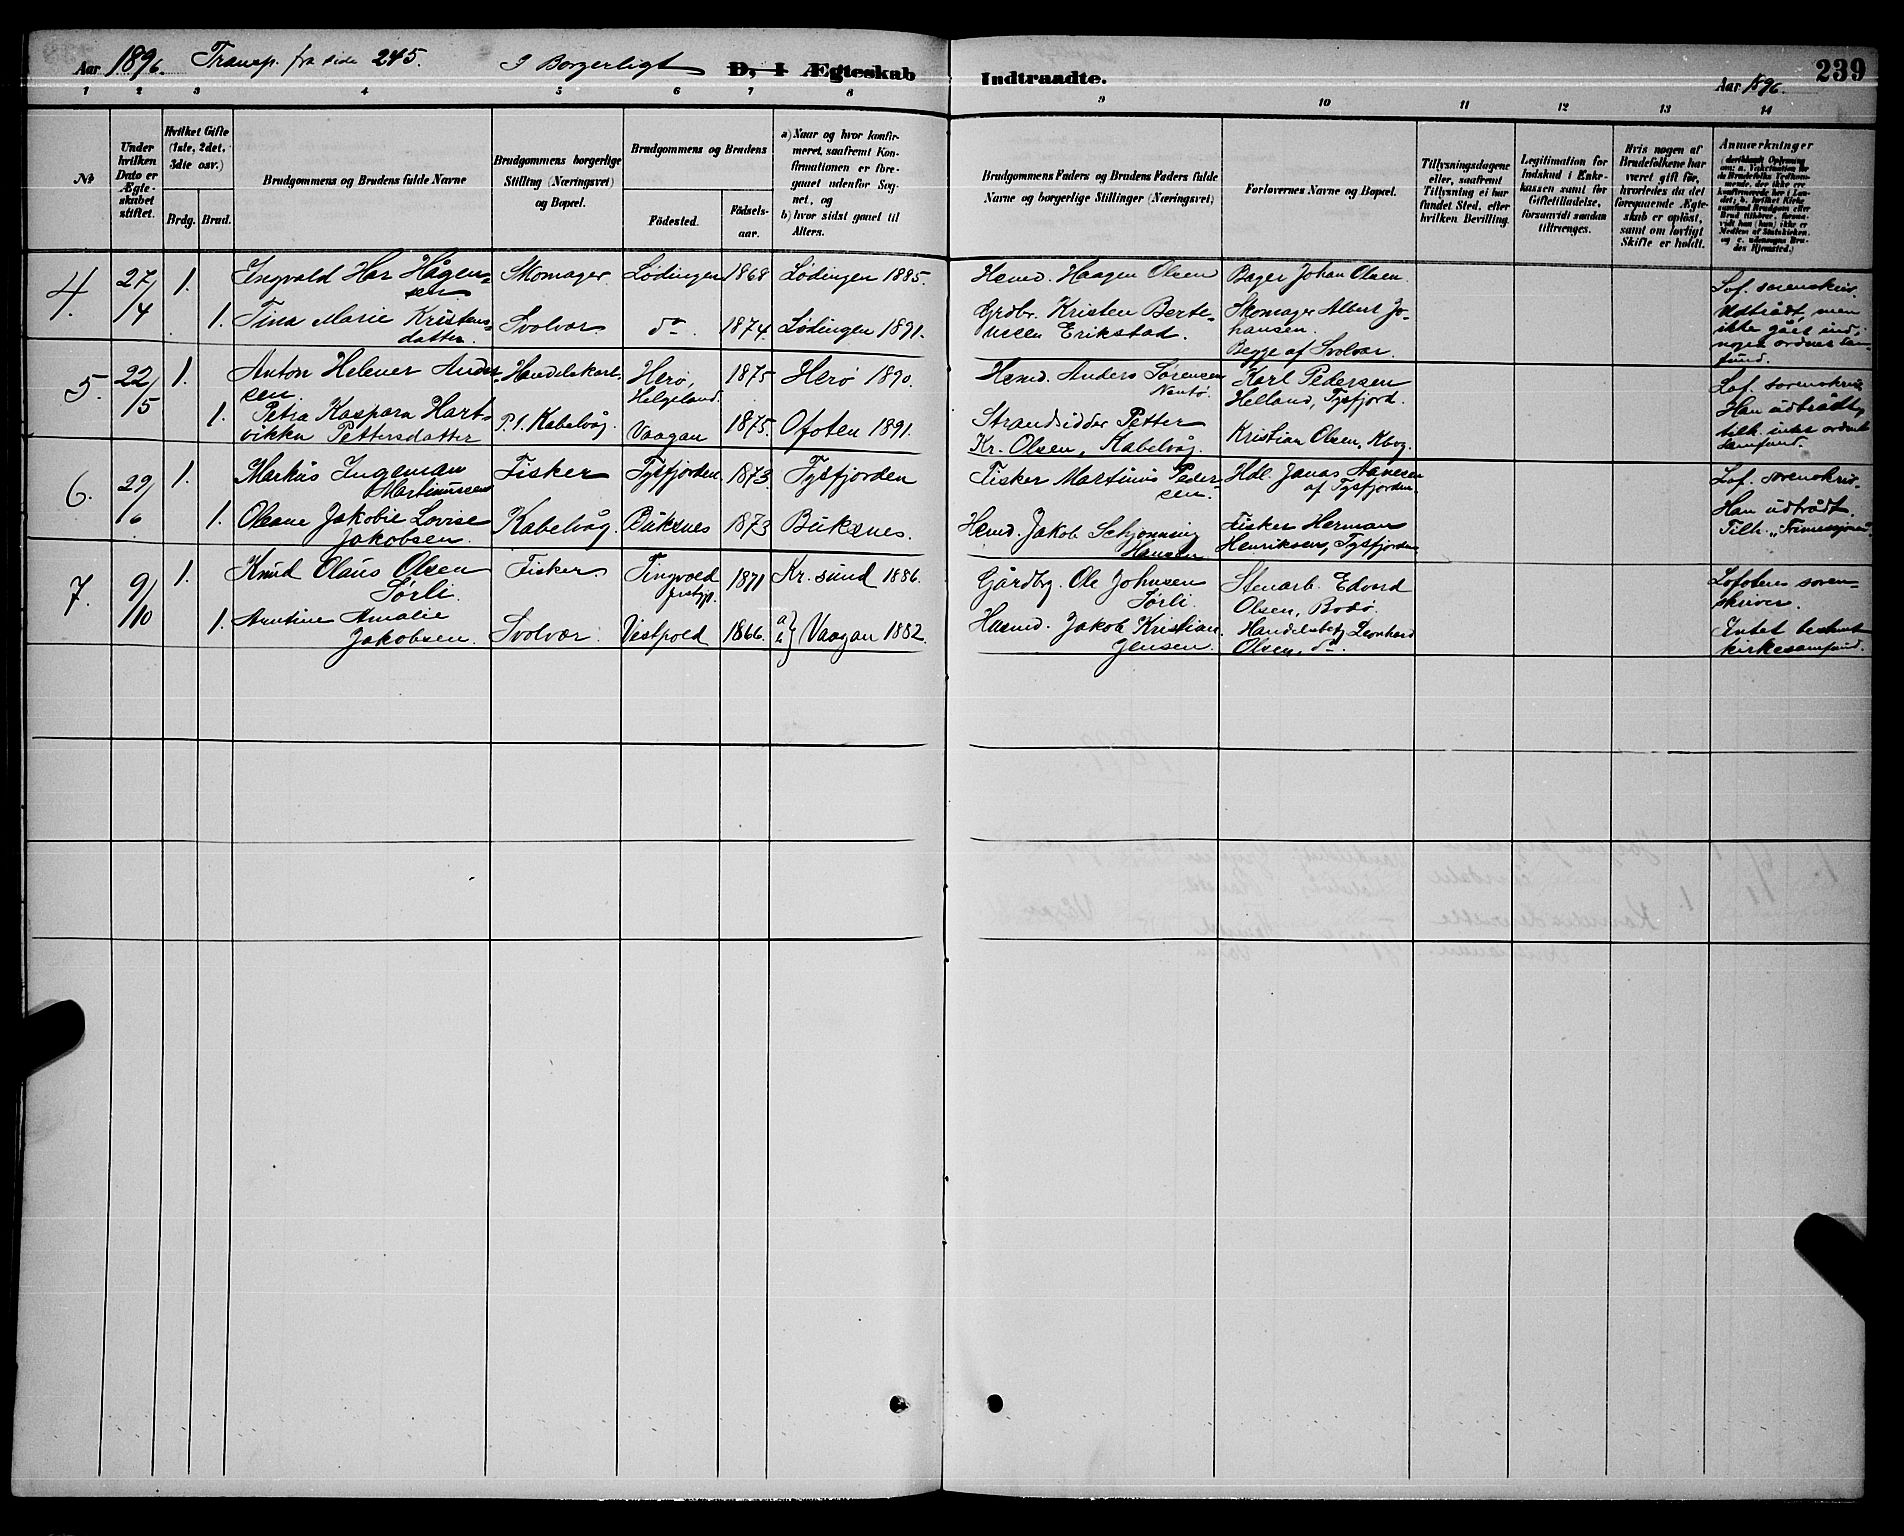 Aar 1896. Transp. fra side 245. I Borgerligt D, I Ægteskab
Indtraadte.
Aar 1896.
239
1 2 3 4 5 6 7 8
9 10 11 12 13 14
No
Under hvilken Dato er Ægteskabet stiftet.
Hvilket Gifte (1ste, 2det, 3die osv.)
Brdg. Brud.
Brudgommens og Brudens fulde Navne
Brudgommens borgerlige Stilling (Næringsvei) og Bopæl.
Brudgommens og Brudens
Födested.
Födselsaar.
a) Naar og hvor konfirmeret, saafremt Konfirmationen er foregaaet udenfor Sognet, og
b) hvor sidst gaaet til Alters.
Brudgommens Faders og Brudens Faders fulde Navne og borgerlige Stillinger (Næringsvei)
Forlovernes Navne og Bopæl.
Tillysningsdagene eller, saafremt Tillysning ei har fundet Sted, efter hvilken Bevilling.
Legitimation for Indskud i Enkekassen samt for Giftetilladelse, forsaavidt saadan tiltrænges.
Hvis nogen af Brudefolkene har været gift för, hvorledes da det foregaaende Ægteskab er oplöst, samt om lovligt Skifte er holdt.
Anmærkninger
4. 27/4 1. Ingvald Har Hågensen Skomager. Lødingen 1868 Lødingen 1885.
1. Tina Marie Kristensdatter Svolvær do 1874. Lødingen 1891.
Husmd. Haagen Olsen
Grdbr. Kristen Berteussen Erikstad.
Bager Johan Olsen.
Skomager Albert Johansen.
Begge af Svolvær.
Lof. sorenskriv.
Udtrådt, men
ikke gået ind i
noget ordnet samfund.
5. 22/5 1. Anton Helener Andersen Handelskarl Herø, Helgeland. 1875 Herø 1890.
1. Petra Kaspara Hartvikka Pettersdatter P. t. Kabelvåg. Vaagan 1875. Ofoten 1891.
Husmd. Anders Sørensen
Strandsidder Petter
Kr. Olsen, Kabelvåg.
Karl Pedersen
Helland, Tysfjord.
Kristian Olsen, Kbvg.
Lof. sorenskriv
Han udtrådt,
tilh. intet ordnet
samfund.
6. 29/6 1. Markus Ingeman Martinussen Fisker Tysfjorden 1873. Tysfjorden
1. Oleane Jakobie Lovise Jakobsen Kabelvåg Buksnes 1873 Buksnes.
Fisker Martinus Pedersen.
Husmd. Jakob Schjønning Hansen
Hdl. Jonas
af Tysfjorden.
Fisker Herman
Henriksen, Tysfjorden
Lof. sorenskriv.
Han udtrådt.
Tilh. "Frimissjonen"
7. 9/10 1. Knud Olaus Olsen Sørli. Fisker. Tingvold prstgj. 1871 Kr. sund 1886.
1. Arntine Amalie Jakobsen. Svolvær. Vestpold 1866. a b } Vaagan 1882.
Gårdbr. Ole Johnsen Sørli.
Husmd. Jakob Kristian Jensen.
Stenarb. Edvard
Olsen, Bodø.
Handelsbetj. Leonhard
Olsen, do
Lofotens sorenskriver.
Intet bestemt
kirkesamfund.